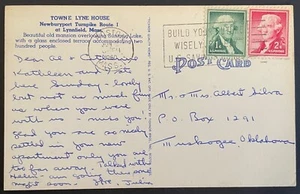 TOWNE LYNE HOUSE
Newburyport Turnpike Route 1
at Lynnfield, Mass.
Beautiful old mansion overlooking Lake,
with a glass enclosed terrace accommodating two
hundred people.
BUILD YO
WISELY
U.S. SA
POST CARD
Dear Al &
Kathleen
here Sunday - lovely
but not as much fun
as when you were
with us - miss you
good you are so nicely
settled in you new
apartment only you are
too far away
Helen am going there
night soon. Julia
Mr. & Mrs Albert Silva
P.O. Box 1291
Muskogee, Oklahoma